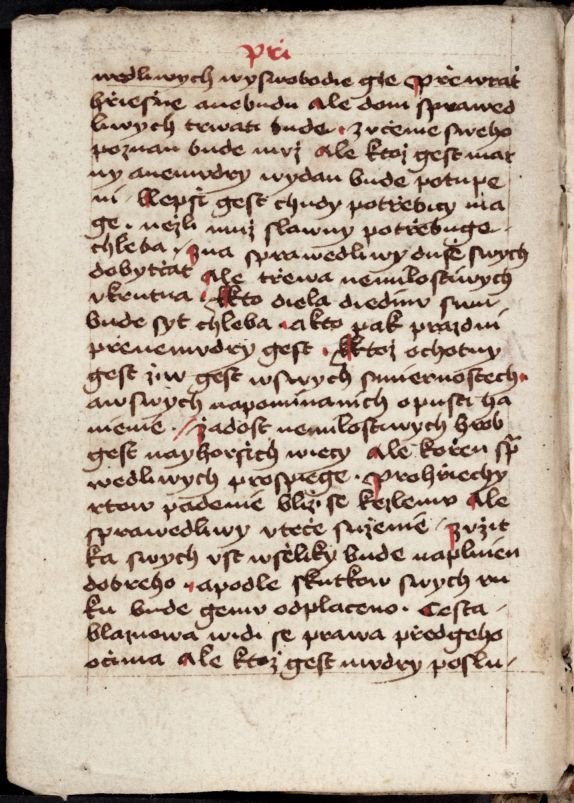 při
wedliwych wyswobodie gie Přewrat
hřiešne anebudu Ale dom sprawed
liwych trwati bude · Z včenie sweho
poznan bude muž Ale ktož gest mar
ny anemudry wydan bude potupe
ni · Llepši gest chudy potřebicy ma
ge · nežli muž slawny potřebuge ·
chleba · Zna sprawedliwy duše swych
dobytčat Ale třewa nemilostiwych
vkrutna · Kto diela diedinu swu
bude syt chleba · akto pak prazdni
přenemudry gest · Ktož ochotny
gest žiw gest wswych smiernostech ·
awswych napominanich opusti ha
nienie · Žadost nemilostiwych hrob
gest nayhorsich wiecy Ale kořen spra
wedliwych prospiege · Prohřiechy
rtow padenie bliži se kezlemu Ale
sprawedliwy vteče suženie · Z vžit
ka swych vst wšeliky bude naplnien
dobreho · apodle skutkow swych ru
ku bude gemu odplaceno · Cesta
blaznowa widi se prawa předgeho
očima Ale ktož gest mudry poslu